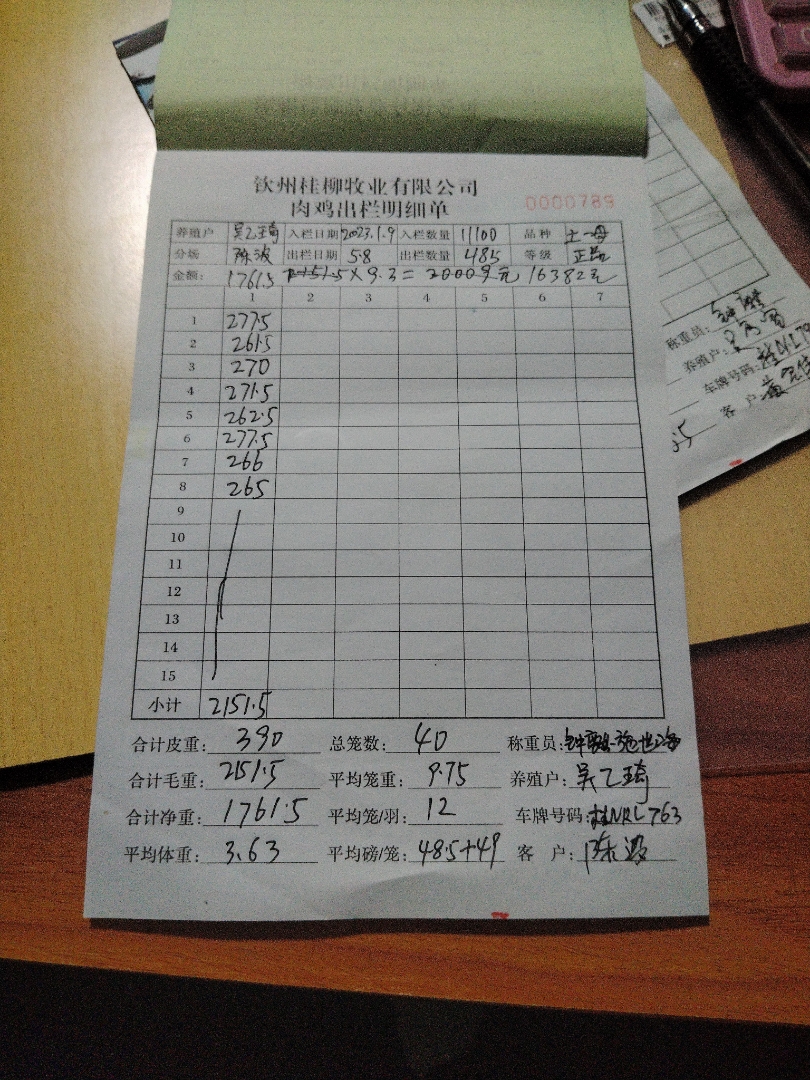 钦州桂柳牧业有限公司
肉鸡出栏明细单
0000789
养殖户 吴乙琦 入栏日期 2023.1.9 入栏数量 11100 品种 土一母
分场 陈波 出栏日期 5.8 出栏数量 485 等级 正品
金额: 1761.5 2151.5×9.3=20009元 16382元
1 2 3 4 5 6 7
1 277.5
2 261.5
3 270
4 271.5
5 262.5
6 277.5
7 266
8 265
9
10
11
12
13
14
15
小计 2151.5
合计皮重: 390 总笼数: 40 称重员:
合计毛重: 2151.5 平均笼重: 9.75 养殖户: 吴乙琦
合计净重: 1761.5 平均笼/羽: 12 车牌号码: 桂NRL763
平均体重: 3.63 平均磅/笼: 48.5+49 客 户: 陈波
称重员:
养殖户:
车牌号码: 桂N·L79
客 户: